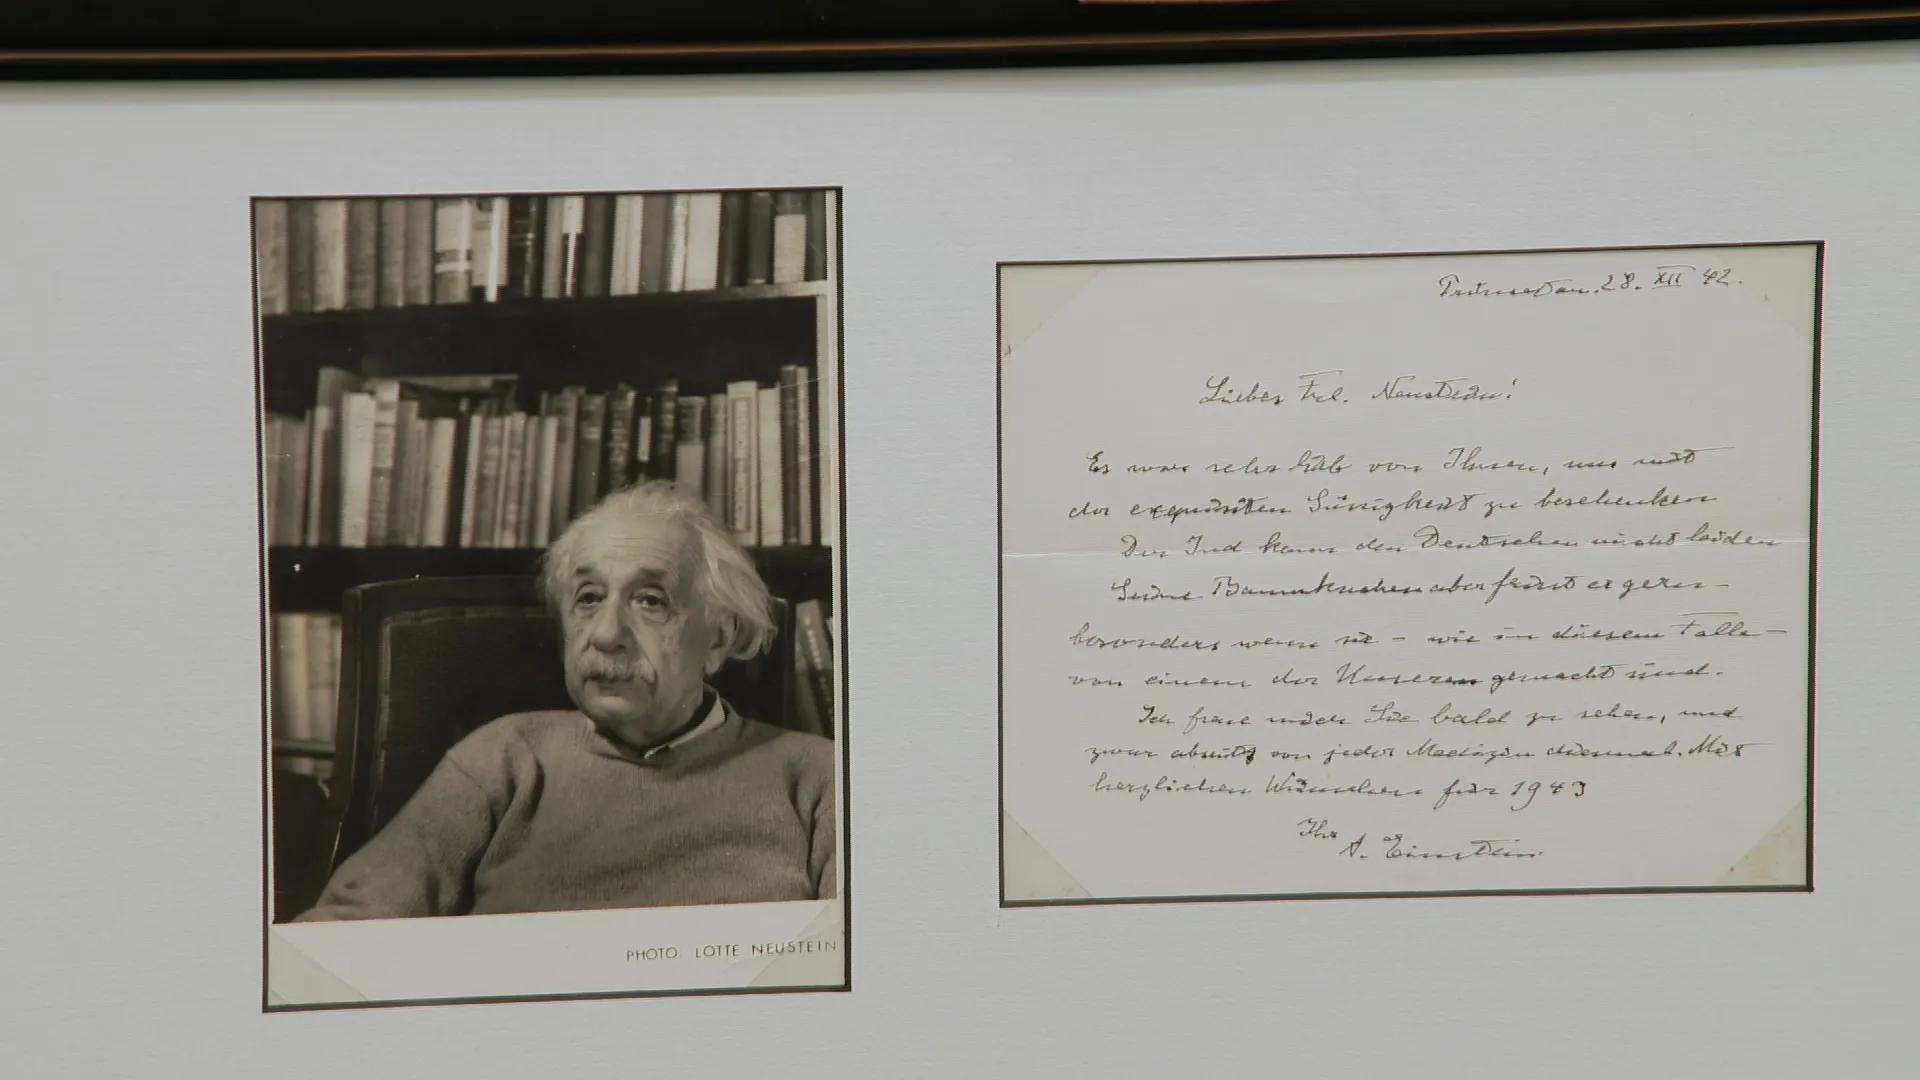 PHOTO: LOTTE NEUSTEIN
Princeton. 28. XII 42.
Liebes Frl. Neustein!
Es war sehr lieb von Ihnen, uns mit
der exquisiten Süssigkeit zu beschenken
Der Jud kann den Deutschen nicht leiden
Seine Baumkuchen aber frisst er gern –
besonders wenn sie – wie in diesem Falle –
von einem der Unseren gemacht sind.
Ich freue mich Sie bald zu sehen, und
zwar abseits von jeder Medizin diesmal. Mit
herzlichen Wünschen für 1943
Ihr
A. Einstein.